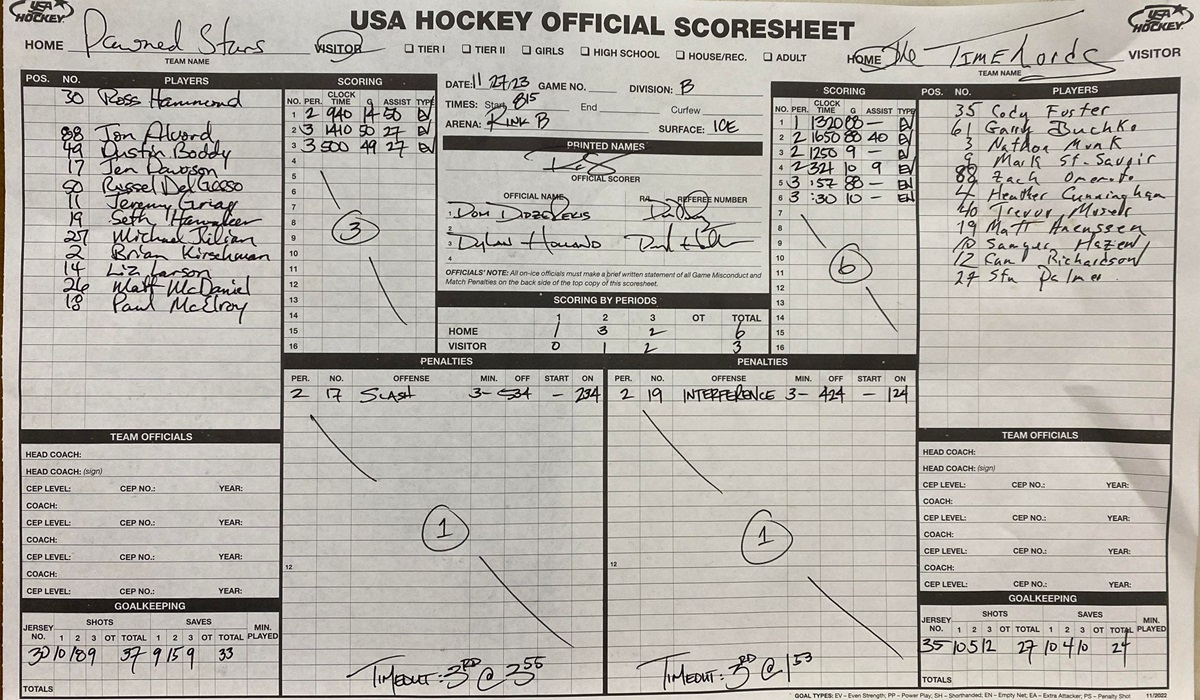 USA HOCKEY
USA HOCKEY OFFICIAL SCORESHEET
USA HOCKEY
HOME Pawned Stars VISITOR
TEAM NAME
☐ TIER I ☐ TIER II ☐ GIRLS ☐ HIGH SCHOOL ☐ HOUSE/REC. ☐ ADULT
HOME The Time Lords VISITOR
TEAM NAME
POS. NO. PLAYERS
30 Ross Hammond
88 Jon Alvord
49 Dustin Boddy
17 Jen Davidson
50 Russel DelGosso
11 Jeremy Griag
19 Seth
27 Michael Julian
2 Brian Kirschman
14 Liz Larson
26 Matt McDaniel
18 Paul McElroy
SCORING
NO. PER. CLOCK TIME G ASSIST TYPE
1 2 940 14 50 EV
2 3 1410 50 27 EV
3 3 500 49 27 EV
4
5
6
7
8
9
10
11
12
13
14
15
16
3
DATE: 11 27 23 GAME NO. DIVISION: B
TIMES: Start 815 End Curfew
ARENA: RINK B SURFACE: ICE
PRINTED NAMES
OFFICIAL SCORER
OFFICIAL NAME REFEREE NUMBER
1 Dom
2
3 Dylan Howard
4
OFFICIALS' NOTE: All on-ice officials must make a brief written statement of all Game Misconduct and
Match Penalties on the back side of the top copy of this scoresheet.
SCORING BY PERIODS
1 2 3 OT TOTAL
HOME 1 3 2 6
VISITOR 0 1 2 3
SCORING
NO. PER. CLOCK TIME G ASSIST TYPE
1 1 1320 88 - EV
2 2 1650 88 40 EV
3 2 1250 9 - EV
4 2 324 10 9 EV
5 3 :57 88 - EN
6 3 :30 10 - EN
7
8
9
10
11
12
13
14
15
16
6
POS. NO. PLAYERS
35 Cody Foster
61 Garry Buchko
3 Nathan Munk
9 Mark St. Savoir
88 Zach
4 Heather Cunningham
40 Trevor
19 Matt
10 Sawyer Hazen
12 Cam Richardson
27 Stn Palmer
PENALTIES
PER. NO. OFFENSE MIN. OFF START ON
2 17 SLASH 3- 534 - 234
1
12
TIMEOUT: 3RD @ 3 55
PENALTIES
PER. NO. OFFENSE MIN. OFF START ON
2 19 INTERFERENCE 3- 424 - 124
1
12
TIMEOUT: 3RD @ 1 53
TEAM OFFICIALS
HEAD COACH:
HEAD COACH: (sign)
CEP LEVEL: CEP NO.: YEAR:
COACH:
CEP LEVEL: CEP NO.: YEAR:
COACH:
CEP LEVEL: CEP NO.: YEAR:
COACH:
CEP LEVEL: CEP NO.: YEAR:
GOALKEEPING
SHOTS SAVES
JERSEY NO. 1 2 3 OT TOTAL 1 2 3 OT TOTAL MIN. PLAYED
30 10 18 9 37 9 15 9 33
TOTALS
TEAM OFFICIALS
HEAD COACH:
HEAD COACH: (sign)
CEP LEVEL: CEP NO.: YEAR:
COACH:
CEP LEVEL: CEP NO.: YEAR:
COACH:
CEP LEVEL: CEP NO.: YEAR:
COACH:
CEP LEVEL: CEP NO.: YEAR:
GOALKEEPING
SHOTS SAVES
JERSEY NO. 1 2 3 OT TOTAL 1 2 3 OT TOTAL MIN. PLAYED
35 10 5 12 27 10 4 10 24
TOTALS
GOAL TYPES: EV – Even Strength; PP – Power Play; SH – Shorthanded; EN – Empty Net; EA – Extra Attacker; PS – Penalty Shot 11/2022